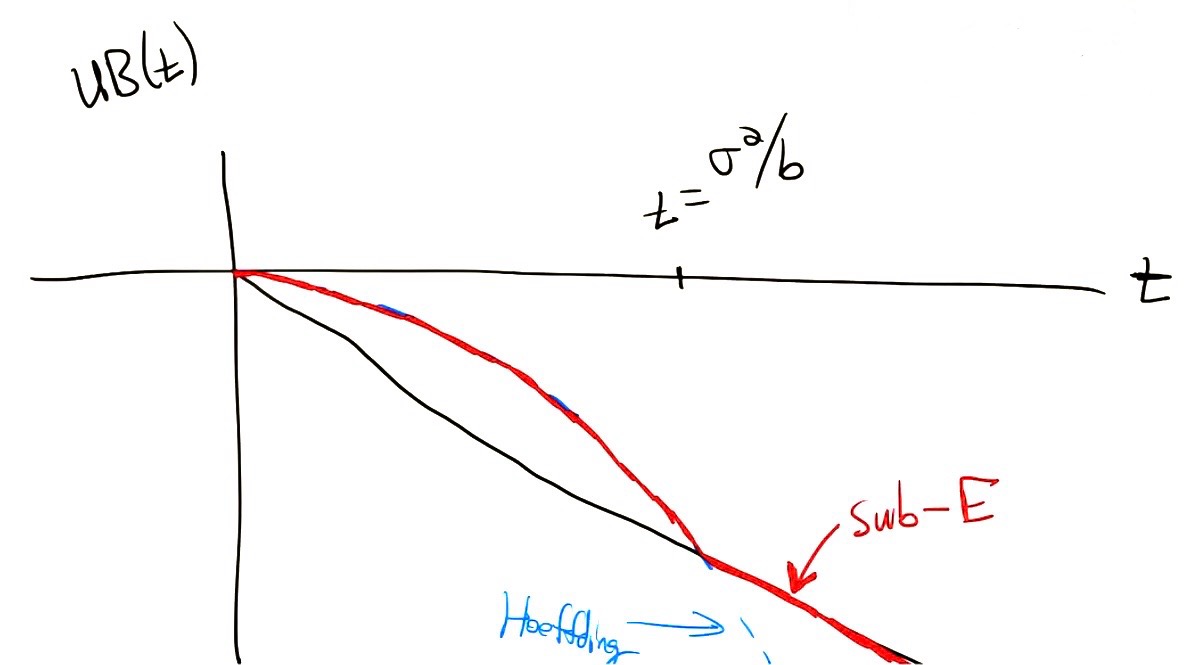 UB(t)
t = σ²/b
t
sub-E
Hoeffding